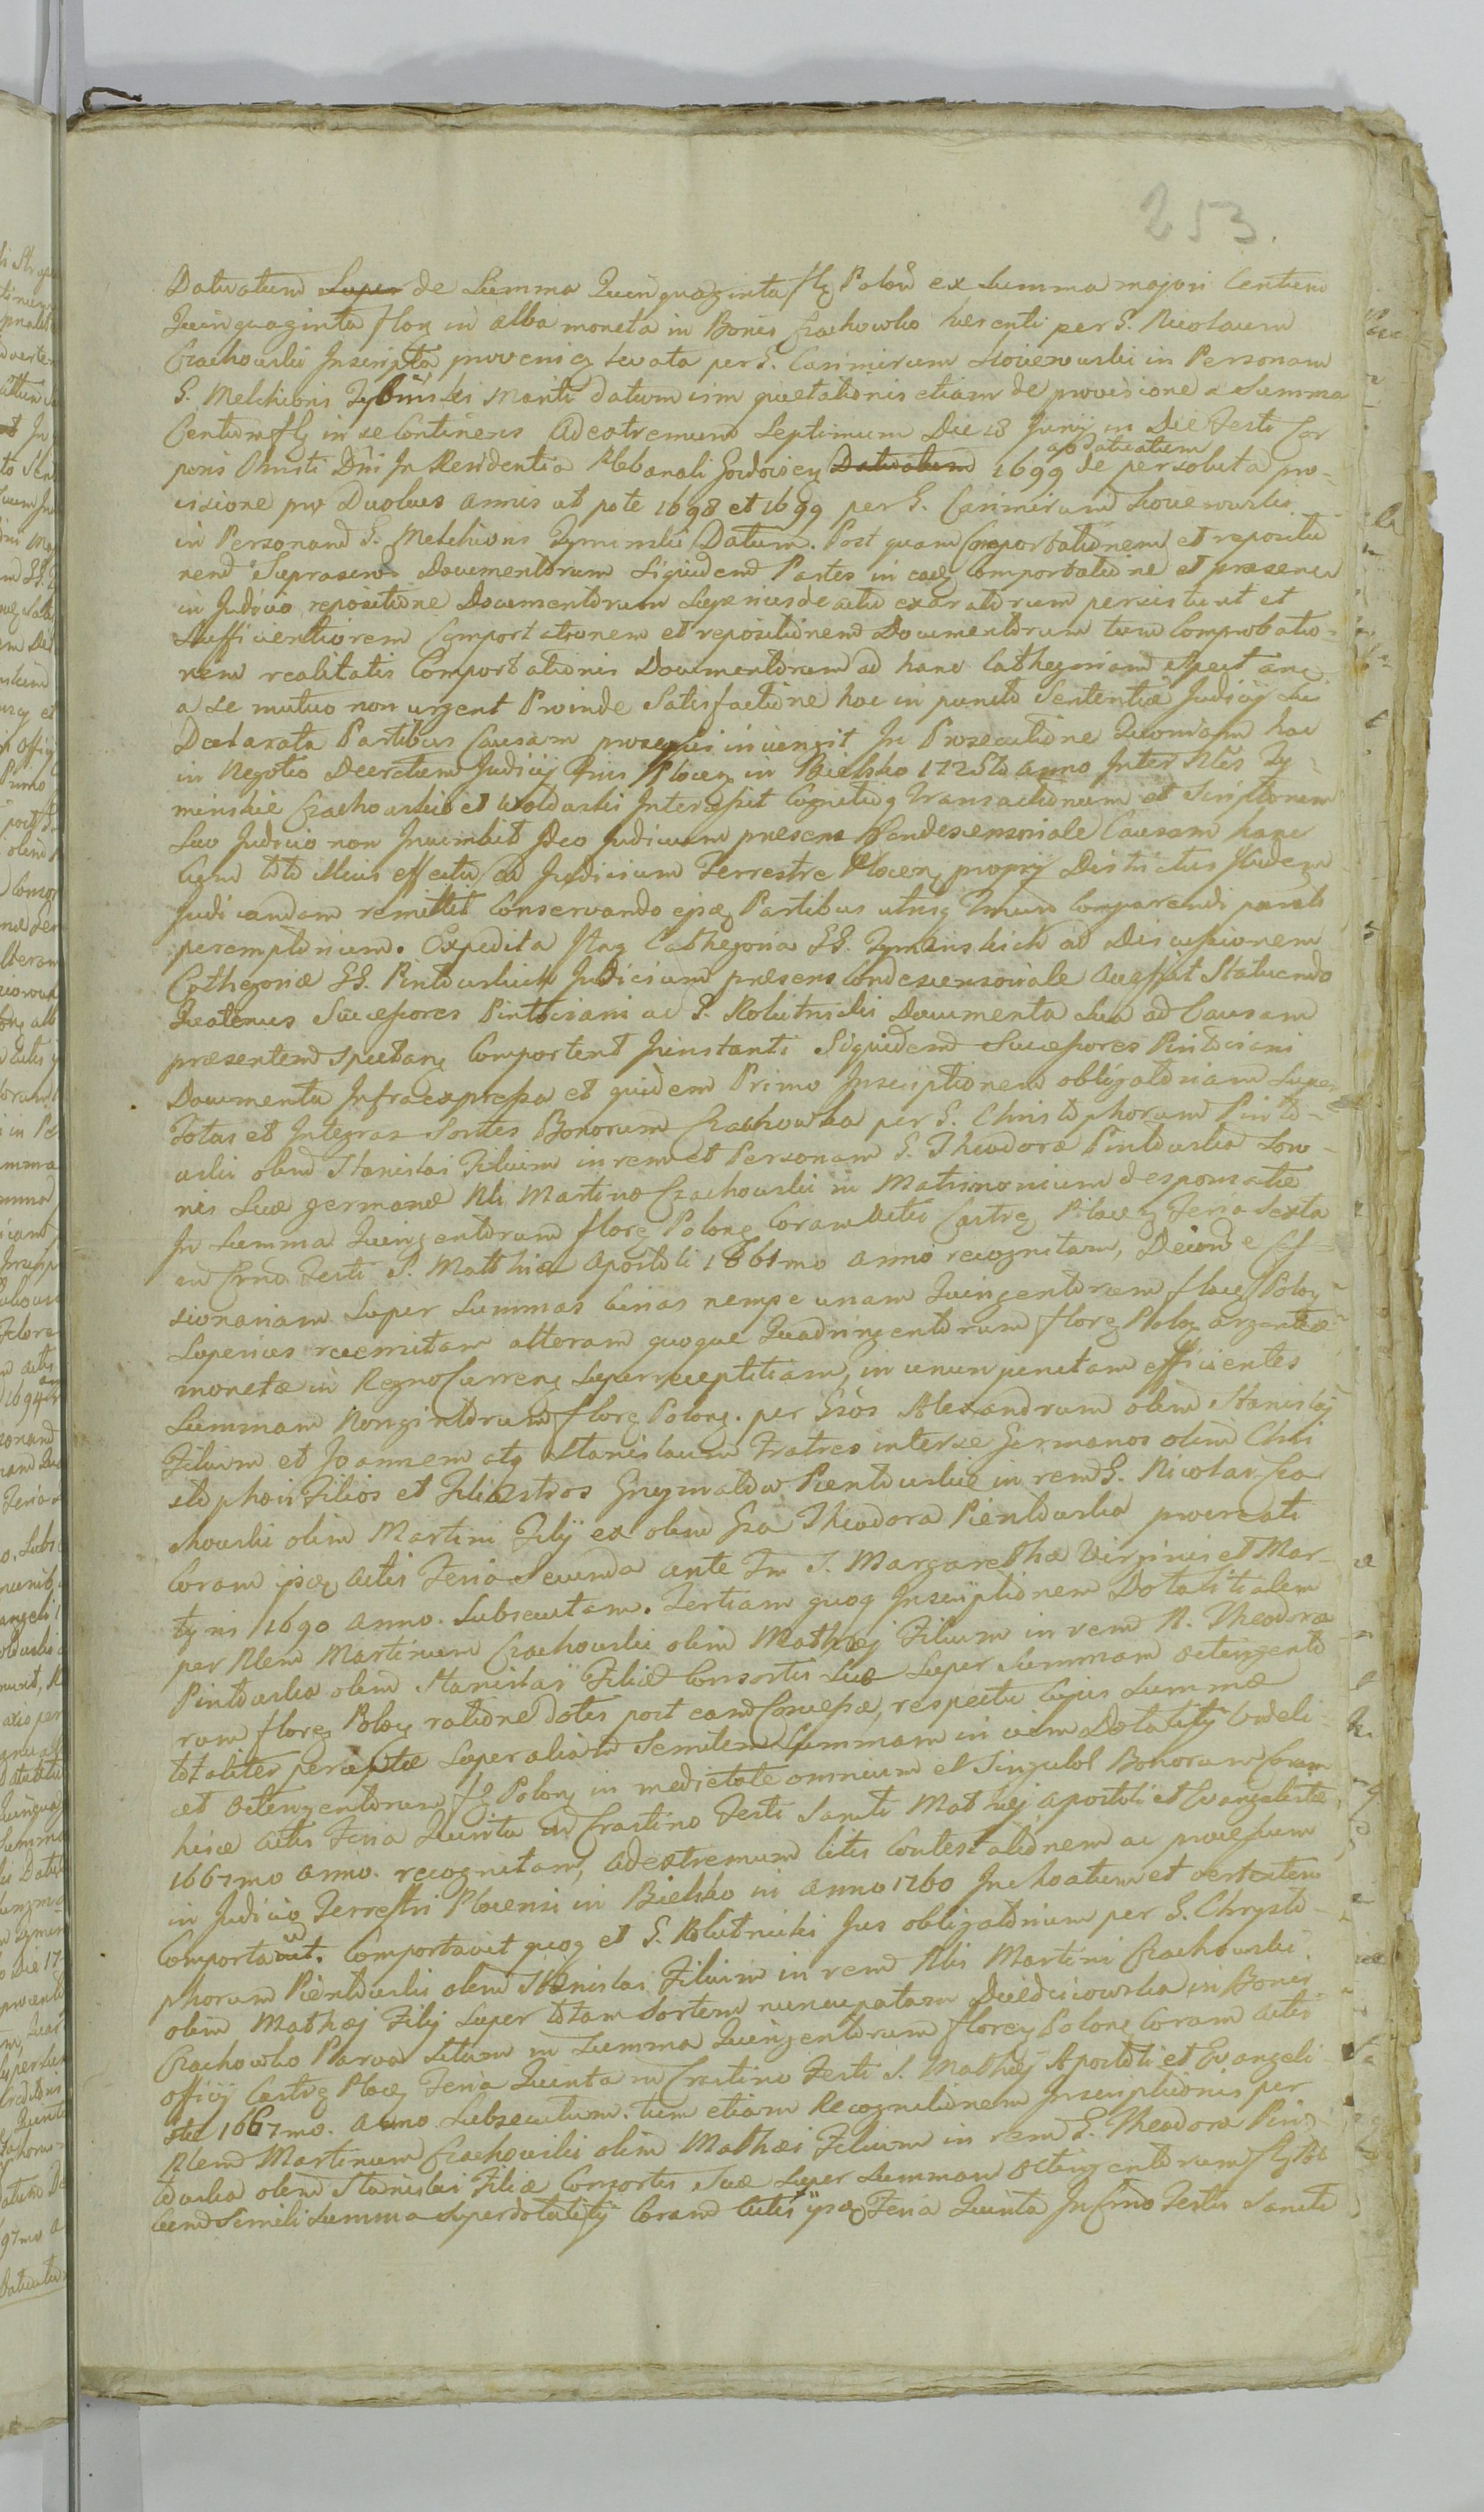 253.
Datuatum Super de Summa Quinquaginta flꝫ Polon ex Summa majori Centum
Quinquaginta floꝝ in alba moneta in Bonis Czachowko herenti per G. Nicolaum
Czachowski Inscripta provenieꝫ levata per G. Casimirum Slovewski in Personam
G. Melchioris Zyminski Mariti datum cum quietationis etiam de provisione a Summa
Centum flꝫ in se Continens Ad extremum Septimum Die 18 Junij in Die Festi Cor
poris Christi Dñi In Residentia Plebanali Datuatum 1699 apo datuatum de persoluta pro-
visione pro Duobus annis ut pote 1698 et 1699 per G. Casimirum
in Personam G. Melchioris Zyminski Datum. Post quam Comportationem et repositio
nem Suprascr. Documentorum Siquidem Partes in eadꝫ Comportatione et praesenti
in Judicio repositione Documentorum Superius de actu exaratorum persistunt et
Sufficientiorem Comportationem et repositionem Documentorum tum Comprobatio-
nem realitatis Comportationis Documentorum ad hanc Cathegoriam spectan
a se mutuo non urgent Proinde Satisfactione hoc in puncto Sententiae Judicij sui
Declarata Partibus Causam prosequi injungit In Prosecutione Quoniam hoc
in Negotio Decretum Judicij Plocen in Bielsko 1725to anno Inter Nles Zy-
minskie Czachowskie et Woldowski Intercessit Cognitioq Transactionum et Scriptorum
Suo Judicio non Incumbit Ideo Judicium praesens Condescensoriale Causam hanc
Cum toto illius effectu ad Judicium Terrestre Plocen proprij Districtus
Judicandam remittit Conservando ipsꝫ Partibus utrisqꝫ Tmum Comparendi
peremptorium. Expedita Itaqꝫ Cathegoria GG. Zyminskich ad Discussionem
Cathegoriae GG. Pintowskich Judicium praesens Condescensoriale Accessit Statuendo
Quatenus Successores Pintoviani ac G. Kolutnicki Documenta sua ad Causam
praesentem spectanꝫ Comportent Juinstanti Siquidem Successores Pintoviani
Documenta Infraexpressa et quidem Primo Inscriptionem obligatoriam Super
Totas et Integras Sortes Bonorum Czachowka per G. Christophorum Pinto-
wski olim Stanislai Filium in rem et Personam G. Theodorae Pintowska Soro-
ris Suae germanae Nli Martino Czachowski in Matrimonium desponsatae
In Summa Quingentorum floreꝫ Polonꝫ Coram Actis Castrꝫ Plocenꝫ Feria Sexta
in Crno Festi S. Matthiae Apostoli 1661mo anno recognitam, Deinde Ces-
sionariam Super Summas binas nempe unam Quingentorum floreꝫ Polonꝫ
Superius recensitam alteram quoque Quadringentorum floreꝫ Polonꝫ argenteae
monetae in Regno Currenꝫ Superreceptitiam, in unum junctam efficientes
Summam Nongintorum floreꝫ Polonꝫ. per Gsos Alexandrum olim Stanislaj
Filium et Joannem atqꝫ Stanislaum Fratres inter se Germanos olim Chri
stophori Filios et Filiastros Grzymaltow Pientowskie in rem G. Nicolai Cza
chowski olim Martini Filij ex olim Gsa Theodora Pientowska procreati
Coram ipsꝫ Actis Feria Secunda ante Fm S. Margarethae Virginis et Mar-
tyris 1690 anno. Subsecutam. Tertiam quoqꝫ Inscriptionem Dotalitialem
per Nlem Martinum Czachowski olim Mathaej Filium in rem N. Theodorae
Pintowska olim Stanislai Filiae Consortis Suae Super Summam octingento
rum floreꝫ Polonꝫ ratione dotis post eam Concessae, respectu Cujus Summae
totaliter perceptae Super aliam similem Summam in vim Dotalitij videli-
cet octingentorum flꝫ Polonꝫ in medietate omnium et Singulor Bonorum Coram
hisce Actis Feria Quinta in Crastino Festi Sancti Mathaej Apostoli et Evangelistae,
1667mo anno. recognitam, adextremum litis Contestationem ac processum
in Judicio Terrestri Plocensi in Bielsko in anno 1760 Inchoatum et vertentem
Comportavit. Comportavit quoqꝫ et G. Kolutnicki Jus obligatorium per G. Chrysto-
phorum Pientowski olim Stanislai Filium in rem Nlis Martini Czachowski.
olim Mathaej Filij Super totam Sortem nuncupatam Dziedzicowska in Bonis
Czachowko Parva Sitam in Summa Quingentorum floreꝫ Polonꝫ Coram Actis
officij Castrꝫ Plocꝫ Feria Quinta in Crastino Festi S. Mathaej Apostoli et Evangeli
stae 1667mo. anno Subsecutum. tum etiam Recognitionem Inscriptionis per
Nlem Martinum Czachowski olim Mathaei Filium in rem G. Theodorae Pin-
towska olim Stanislai Filiae Consortis Suae Super Summam octingentorum flꝫ Pol
Cum Simili Summa Superdotalitij Coram Actis ijsdꝫ Feria Quinta In Crno Festi Sancti